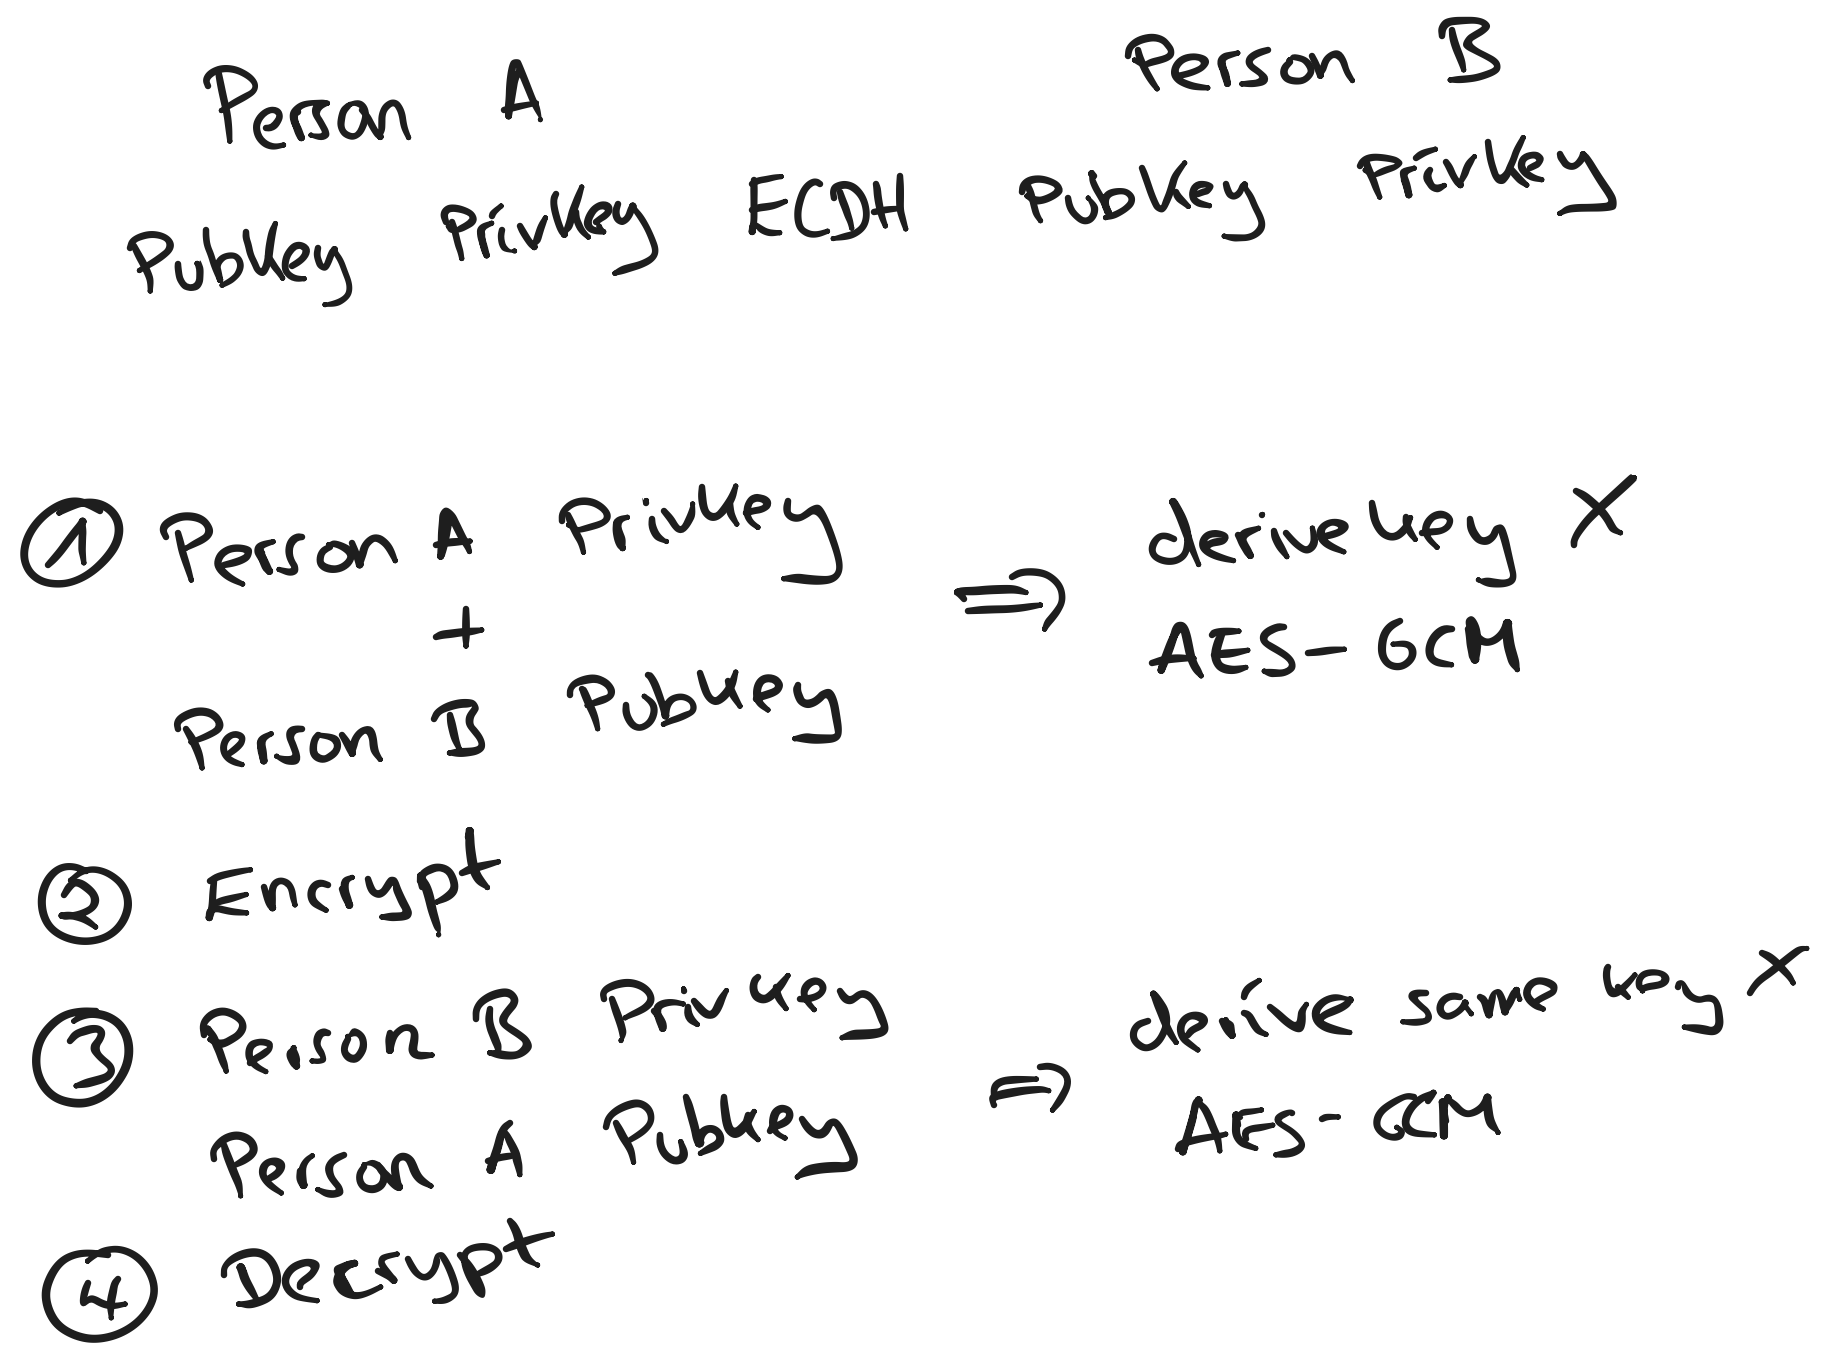 Person A
Person B
PubKey PrivKey ECDH PubKey PrivKey
① Person A PrivKey
+
Person B PubKey
⇒ derive key X
AES-GCM
② Encrypt
③ Person B PrivKey
Person A PubKey
⇒ derive same key X
AES-GCM
④ Decrypt